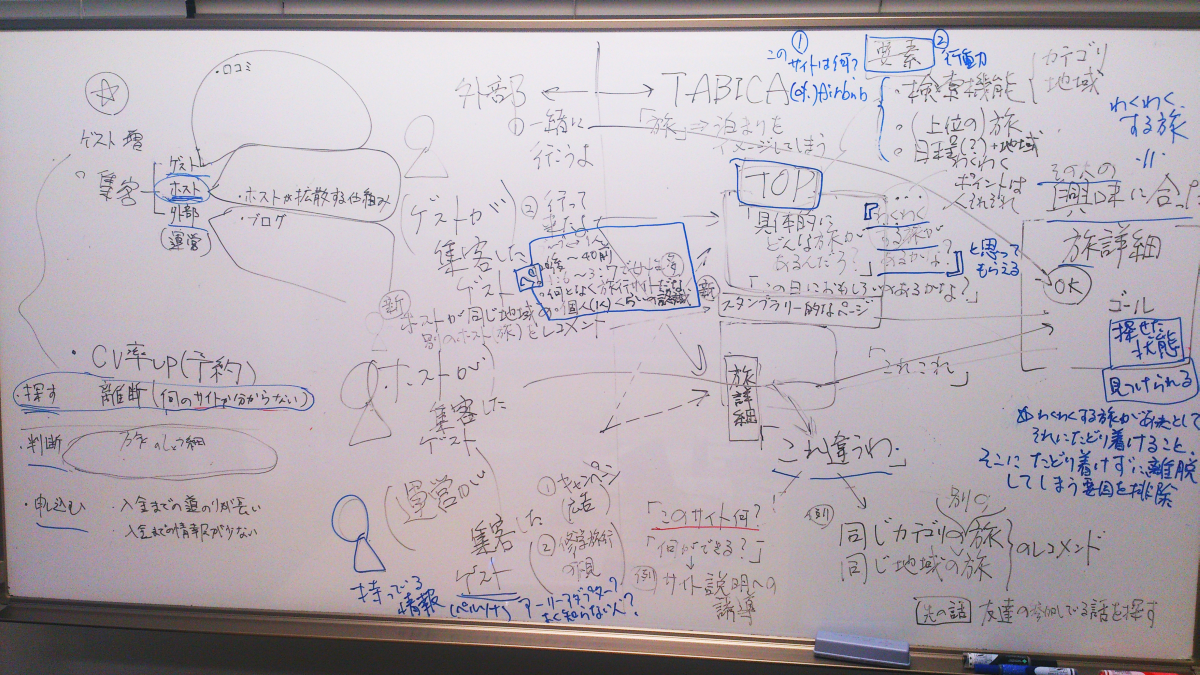 ・口コミ
ゲスト増
集客
ゲスト
ホスト
外部
(運営)
・ホストが拡散する仕組み
・ブログ
・CV率UP(予約)
・探す
離断(何のサイトか分からない)
・判断
旅のしょう細
・申込む
・入金までの道のりが長い
入金までの情報が少ない
外部
TABICA
①一緒に
行こうよ
「旅」⇒泊まりを
イメージしてしまう
(ゲストが
集客した
ゲスト)
②行って
きたよ
新
ホストが同じ地域の
別のホスト(旅)をレコメンド
・個人(1人)くらいの認識
新
(ホストが
集客した
ゲスト)
(運営が
集客した
ゲスト
(ペルソナ)
持っている
情報
①キャンペーン
広告
②修学旅行
の下見
アーリーアダプター?
よく知らない人?
「このサイト何?
「何ができる?」
例)サイト説明への
誘導
①
このサイトは何?
要素
②行動力
・検索機能
カテゴリ
地域
・(上位の)旅
・日程(?)+地域
わくわく
ポイントは
それぞれ
TOP
「具体的に
どんな旅が
あるんだろ?」
『わくわく
する旅が
あるかな?』
と思って
もらえる
「この日におもしろいのがあるかな?」
スタンプラリー的なページ
わくわく
する旅
＝
その人の
興味に合う
旅詳細
OK
ゴール
探せた
状態
見つけられる
「これこれ」
旅詳細
「これ違うわ」
☆わくわくする旅がある
それにたどり着けること、
そこにたどり着けずに離脱
してしまう要因を排除
例)
別の
同じカテゴリの旅
同じ地域の旅
のレコメンド
先の話
友達の参加している話を探す